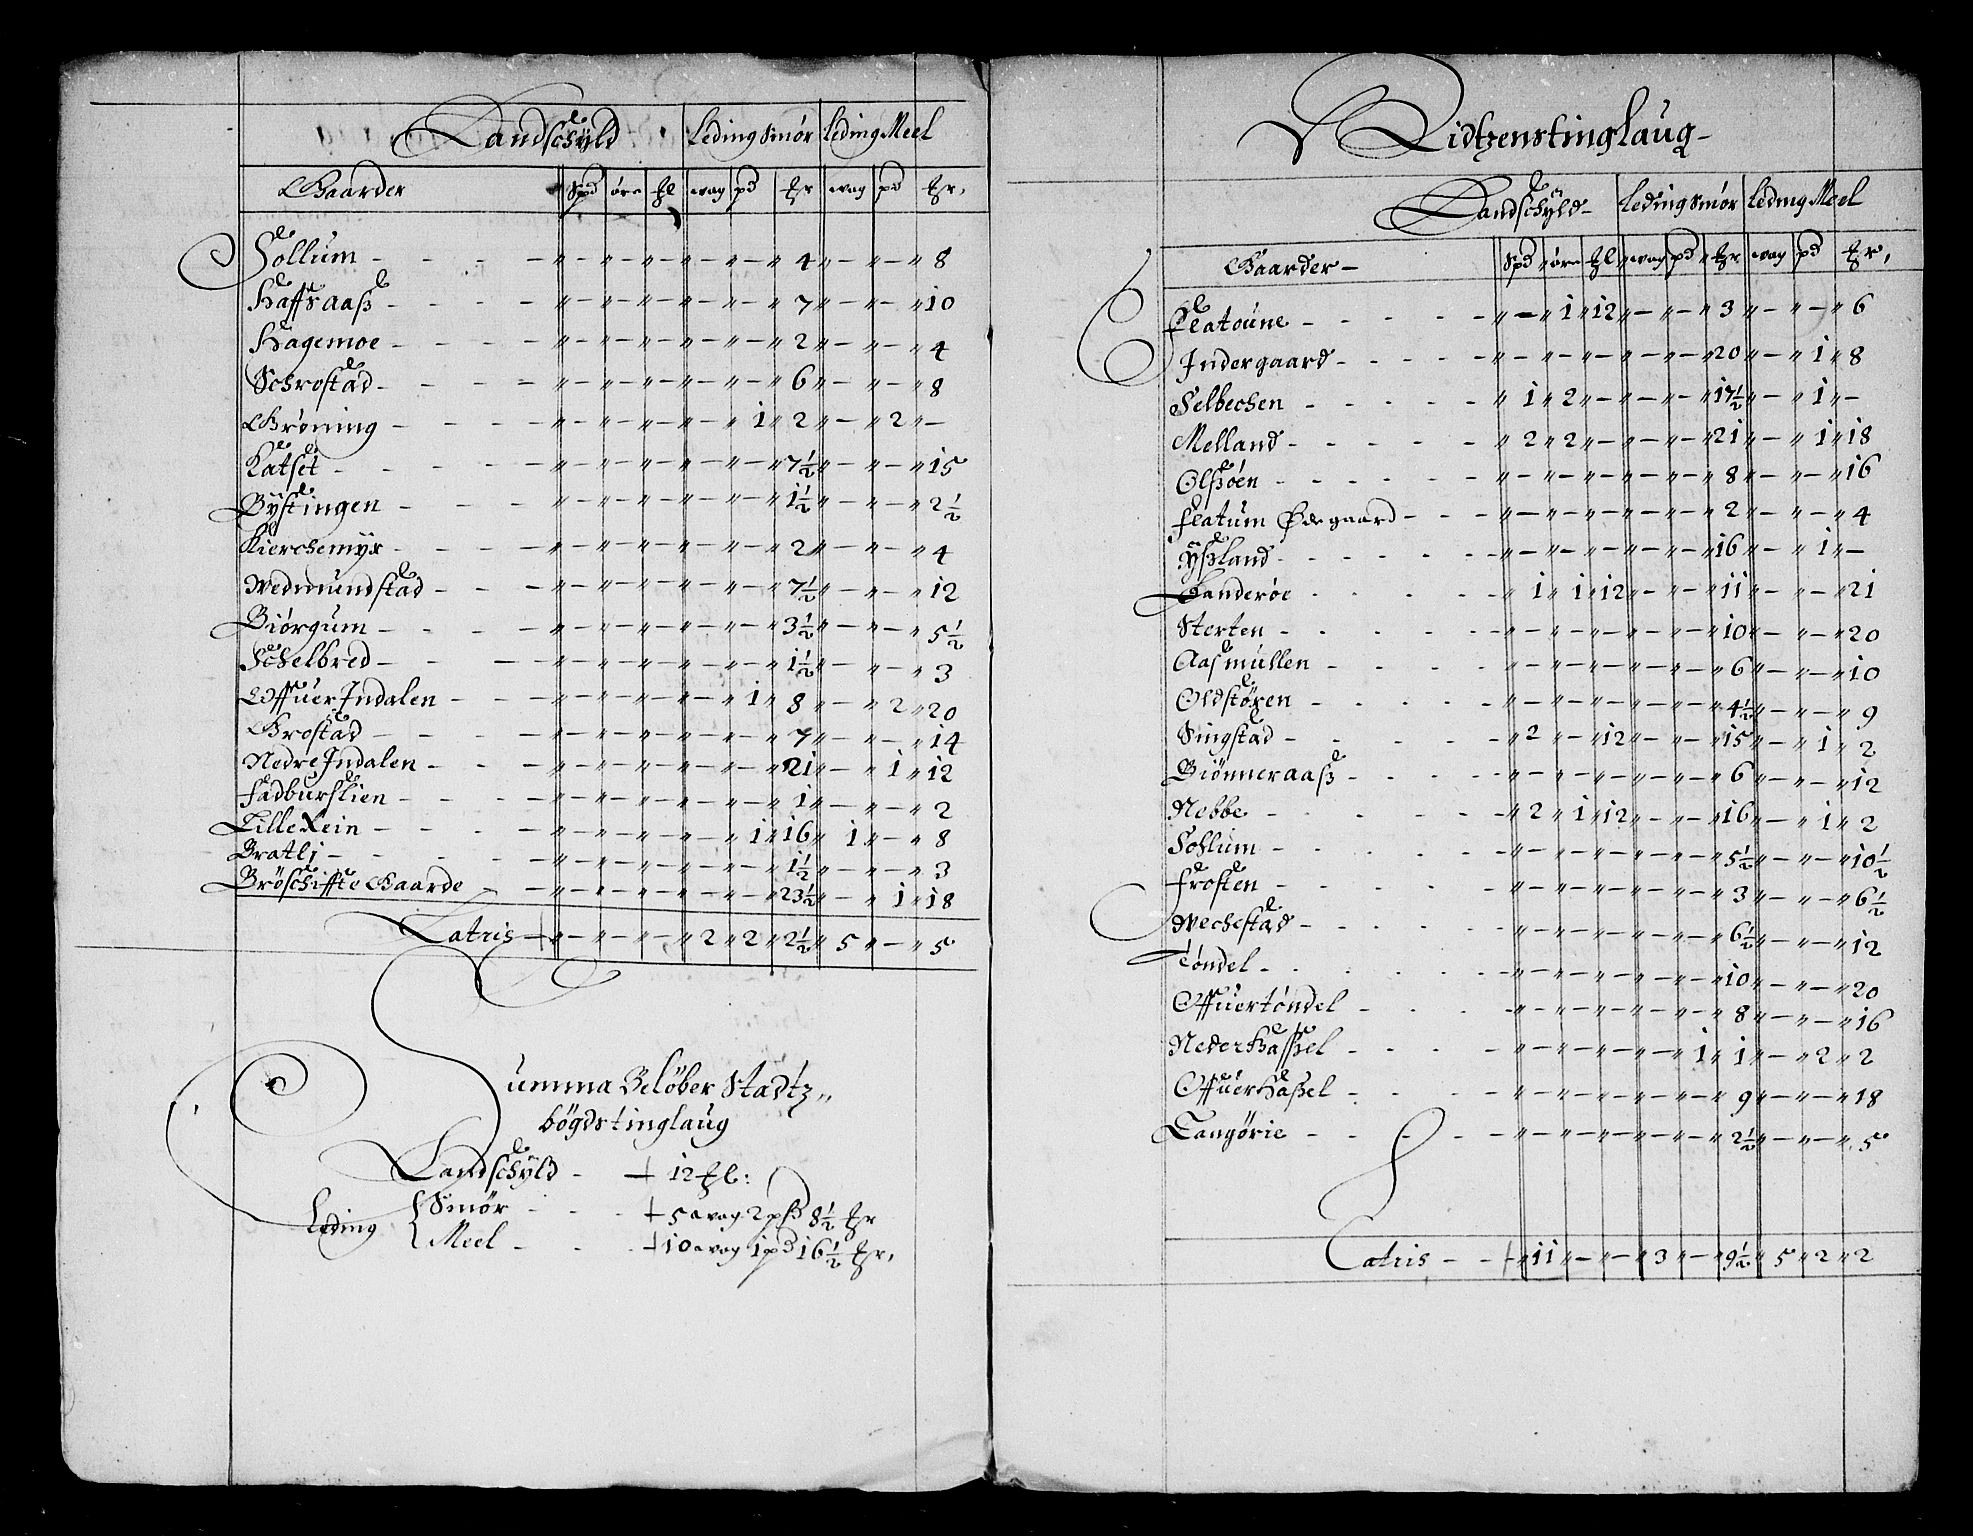 Landschÿld Leding Smör Leding Meel
Gaarder Spd öre ħl wag pd ħr wag pd ħr.
Sollum - - - - " - " - " - " - " - " 4 " - " - " 8
Haffraasz - - - - " - " - " - " - " - " 7 " - " - " 10
Hagemoe - - - - " - " - " - " - " - " 2 " - " - " 4
Schrostad - - - - " - " - " - " - " - " 6 " - " - " 8
Gröning - - - - " - " - " - " - " 1 " 2 " - " 2 " -
Katset - - - - " - " - " - " - " - " 7½ " - " - " 15
Bÿstingen - - - " - " - " - " - " - " 1½ " - " - " 2½
Kierchemÿr - - - " - " - " - " - " - " 2 " - " - " 4
Wedmundstad - - - " - " - " - " - " - " 7½ " - " - " 12
Biörgum - - - - " - " - " - " - " - " 3½ " - " - " 5½
Schelbred - - - - " - " - " - " - " - " 1½ " - " - " 3
Offuer Indalen - - - " - " - " - " - " 1 " 8 " - " 2 " 20
Grostad - - - - " - " - " - " - " - " 7 " - " - " 14
Nedre Indalen - - - " - " - " - " - " - " 21 " - " 1 " 12
Fadburslien - - - - " - " - " - " - " - " 1 " - " - " 2
Lille Rein - - - - " - " - " - " - " 1 " 16 " 1 " - " 8
Bratli - - - - " - " - " - " - " - " 1½ " - " - " 3
Bröschifte Gaarde - - " - " - " - " - " - " 23½ " - " 1 " 18
Latris - + " - " - " - " 2 " 2 " 2½ " 5 " - " 5
Summa Belöber Stadtz"
bögdstinglaug
Landschÿld - + 12 ħl:
Leding { Smör - - - + 5 wag 2 psd 8½ ħr
{ Meel - - - + 10 wag 1 pd 16½ ħr,
Ridtzenstinglaug -
Landschÿld - Leding Smör Leding Meel
Gaarder - Spd " öre " ħl " wag " pd " ħr " wag " pd " ħr,
Flatoune - - - - " - " 1 " 12 " - " - " 3 " - " - " 6
Indergaard - - - - " - " - " - " - " - " 20 " - " 1 " 8
Selbechen - - - - " 1 " 2 " - " - " - " 17½ " - " 1 " -
Melland - - - - " 2 " 2 " - " - " - " 21 " - " 1 " 18
Olszöen - - - - " - " - " - " - " - " 8 " - " - " 16
Flatum Ödegaard - - - " - " - " - " - " - " 2 " - " - " 4
Ÿszland - - - - " - " - " - " - " - " 16 " - " 1 " -
Landeröe - - - - " 1 " 1 " 12 " - " - " 11 " - " - " 21
Sterten - - - - " - " - " - " - " - " 10 " - " - " 20
Aasmullen - - - - " - " - " - " - " - " 6 " - " - " 10
Oldstören - - - - " - " - " - " - " - " 4½ " - " - " 9
Singstad - - - - " 2 " - " 12 " - " - " 15 " - " 1 " 2
Biönneraasz - - - - " - " - " - " - " - " 6 " - " - " 12
Nebbe - - - - " 2 " 1 " 12 " - " - " 16 " - " 1 " 2
Sohlum - - - - " - " - " - " - " - " 5½ " - " - " 10½
Frosten - - - - " - " - " - " - " - " 3 " - " - " 6½
Wechestad - - - - " - " - " - " - " - " 6½ " - " - " 12
Töndel - - - - " - " - " - " - " - " 10 " - " - " 20
Offuertöndel - - - - " - " - " - " - " - " 8 " - " - " 16
Neder Haszel - - - - " - " - " - " - " 1 " 1 " - " 2 " 2
Offuer Haszel - - - - " - " - " - " - " - " 9 " - " - " 18
Langörie - - - - " - " - " - " - " - " 2½ " - " - " 5
Latris - - + " 11 " - " - " 3 " - " 9½ " 5 " 2 " 2